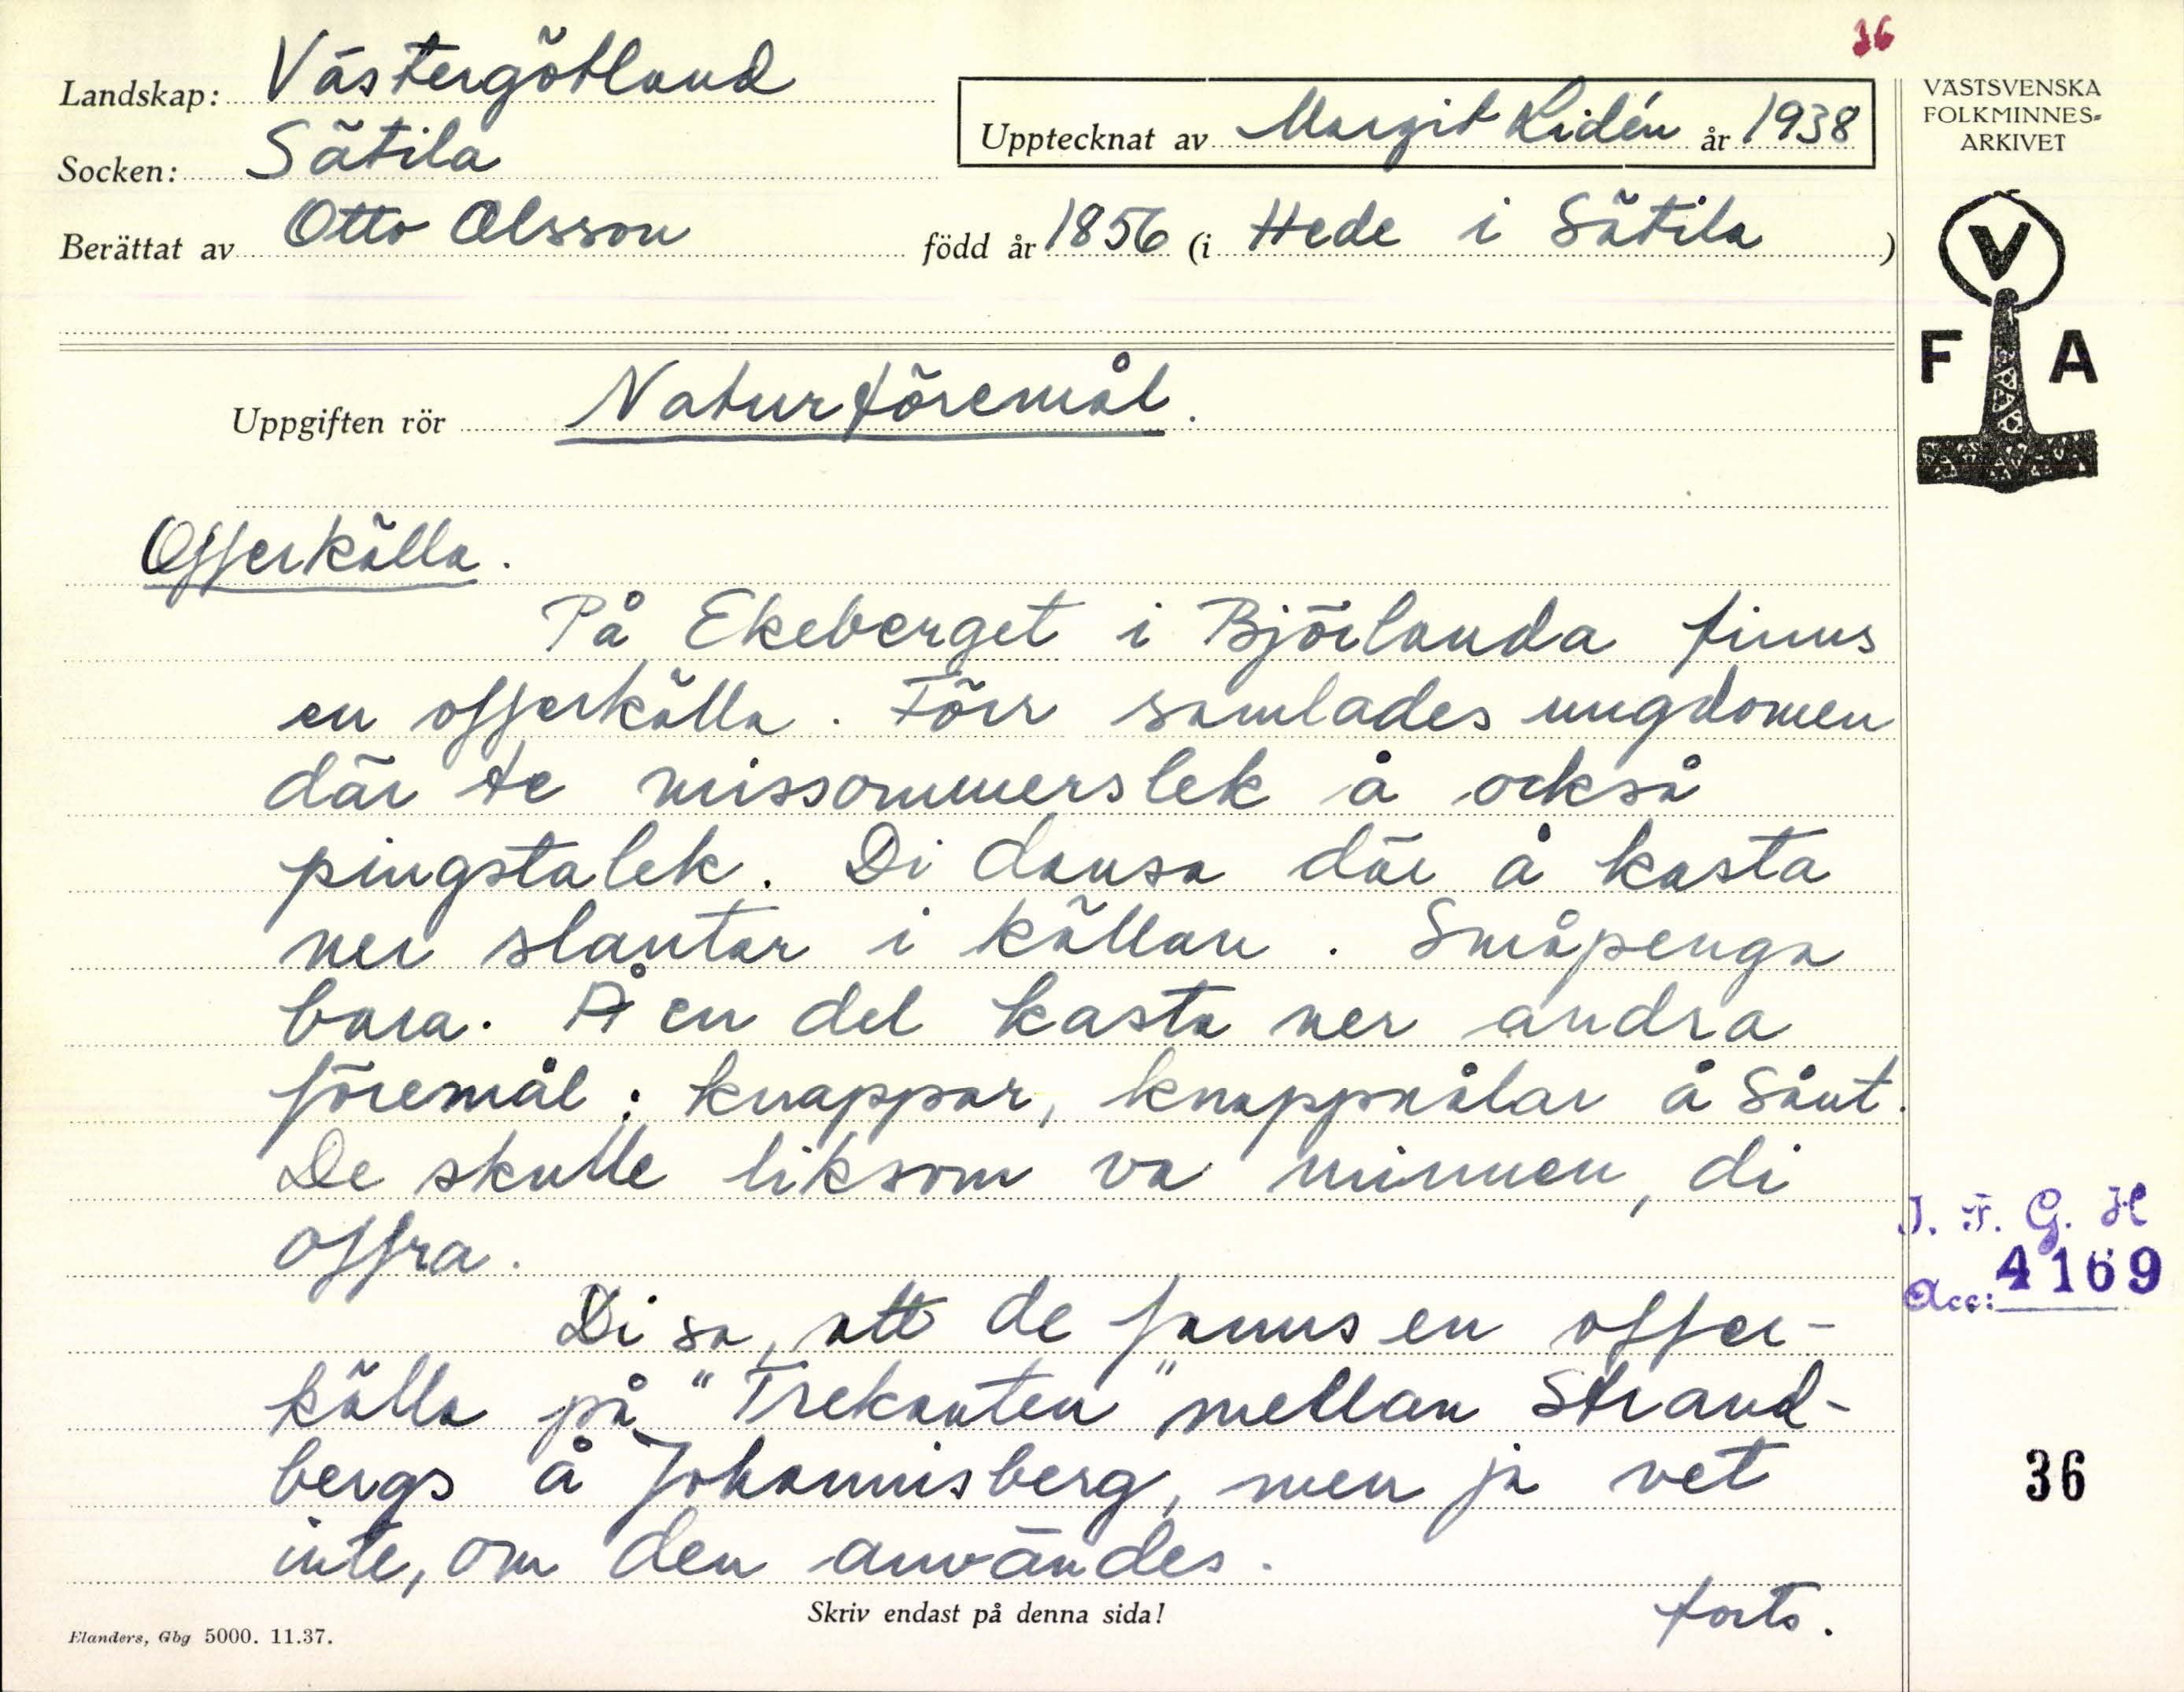 36
Landskap: Västergötland
Socken: Sätila
Berättat av Otto Olsson född år 1856 (i Hede i Sätila)
Upptecknat av Margit Lidén år 1938
VÄSTSVENSKA
FOLKMINNES-
ARKIVET
V
F A
Uppgiften rör Naturföremål.
Offerkälla.
På Ekeberget i Björlanda finns
en offerkälla. Förr samlades ungdomen
där te missommerslek å också
pingstalek. Di dansa där å kasta
ner slantar i källan. Småpenga
bara. Å en del kasta ner andra
föremål: knappar, knappnålar å sånt.
De skulle liksom va minnen, di
offra.
Di sa, att de fanns en offer-
källa på "Trekanten" mellan Strand-
bergs å Johannisberg, men ja vet
inte, om den användes.
forts.
Skriv endast på denna sida!
Elanders, Gbg 5000. 11.37.
I. F. G. H
Acc: 4169
36